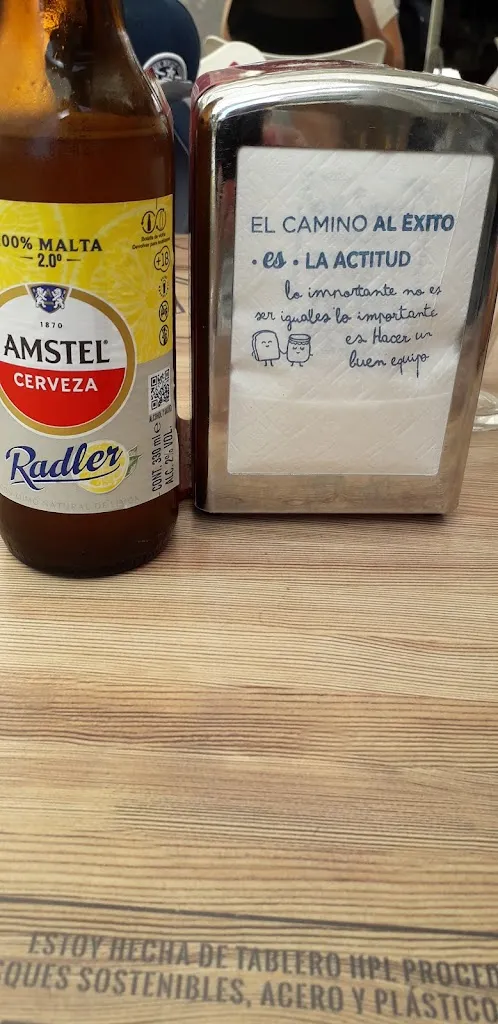 100% MALTA
2.0º
+18
1870
AMSTEL
CERVEZA
Radler
CONT. 330 ml e
ALC. 2% VOL.
EL CAMINO AL ÉXITO
· es · LA ACTITUD
lo importante no es
ser iguales lo importante
es Hacer un
buen equipo
ESTOY HECHA DE TABLERO HPL PROCED
SQUES SOSTENIBLES, ACERO Y PLÁSTICO